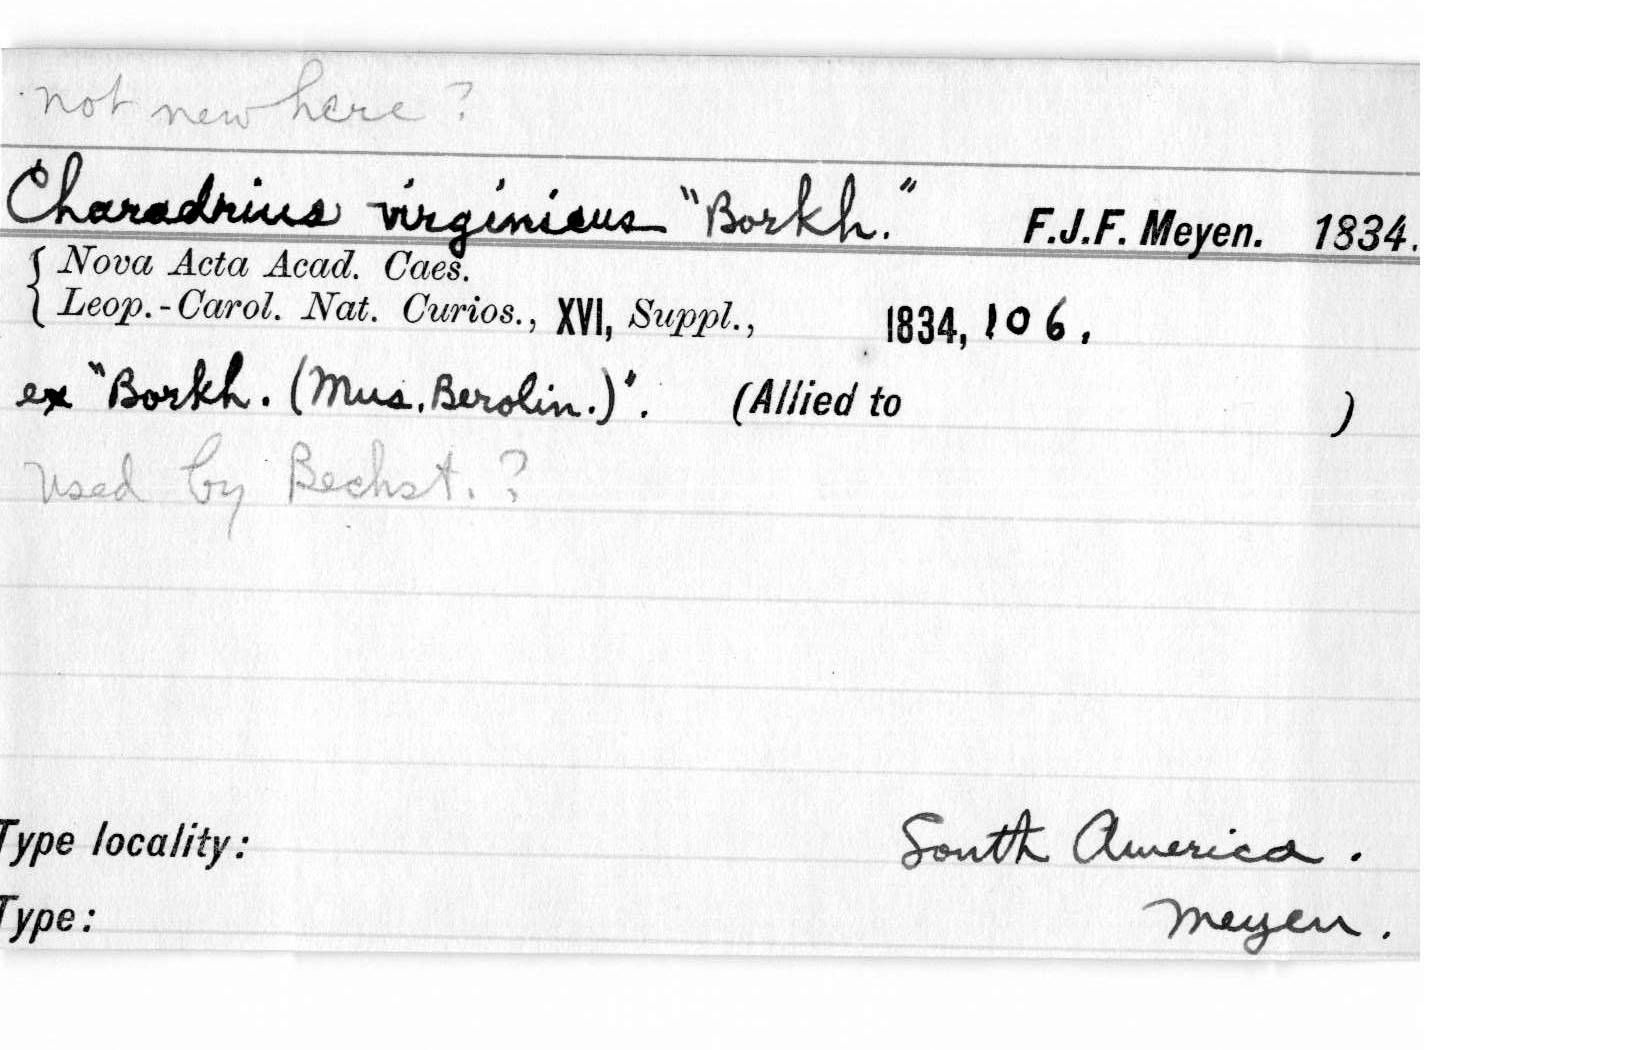 not new here ?
Charadrius virginicus "Borkh." F.J.F. Meyen. 1834.
{ Nova Acta Acad. Caes.
Leop.-Carol. Nat. Curios., XVI, Suppl., 1834, 106.
ex "Borkh. (Mus. Berolin.)". (Allied to )
used by Bechst. ?
Type locality: South America.
Type: Meyen.